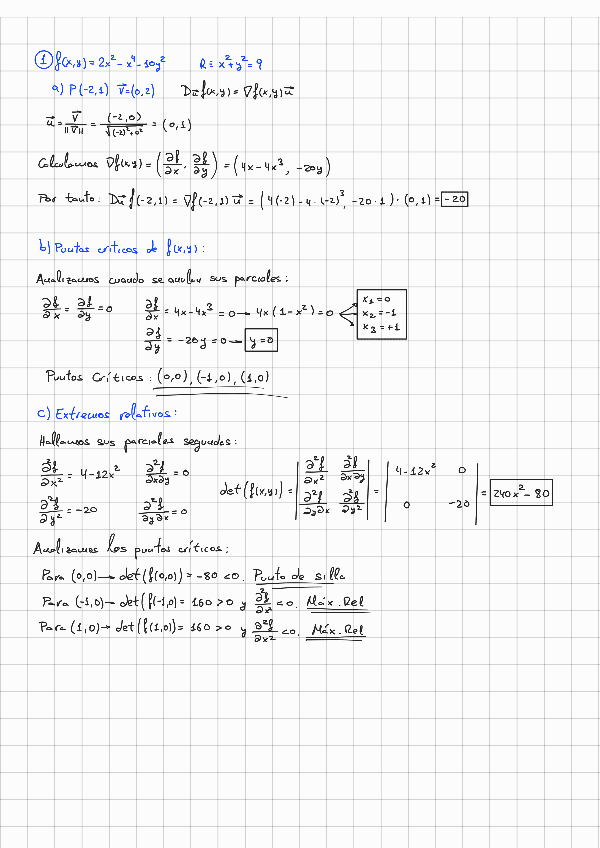 1 f(x,y) = 2x² - x⁴ - 10y² R ≡ x² + y² = 9
a) P(-2,1) V⃗=(0,2) Du⃗ f(x,y) = ∇f(x,y) u⃗
u⃗ = V⃗/||V⃗|| = (-2,0)/√((-2)²+0²) = (0,1)
Calculamos ∇f(x,y) = (∂f/∂x, ∂f/∂y) = (4x - 4x³, -20y)
Por tanto: Du⃗ f(-2,1) = ∇f(-2,1) u⃗ = (4(-2) - 4·(-2)³, -20·1)·(0,1) = -20
b) Puntos críticos de f(x,y):
Analizamos cuando se anulan sus parciales:
∂f/∂x = ∂f/∂y = 0 ∂f/∂x = 4x - 4x³ = 0 → 4x(1-x²) = 0 x₁ = 0
x₂ = -1
x₃ = +1
∂f/∂y = -20y = 0 → y = 0
Puntos Críticos: (0,0), (-1,0), (1,0)
c) Extremos relativos:
Hallamos sus parciales segundas:
∂²f/∂x² = 4 - 12x² ∂²f/∂x∂y = 0 det(f(x,y)) = | ∂²f/∂x² ∂²f/∂x∂y | = | 4-12x² 0 | = 240x² - 80
∂²f/∂y² = -20 ∂²f/∂y∂x = 0 | ∂²f/∂y∂x ∂²f/∂y² | | 0 -20 |
Analizamos los puntos críticos:
Para (0,0) → det(f(0,0)) = -80 < 0. Punto de silla
Para (-1,0) → det(f(-1,0) = 160 > 0 y ∂²f/∂x² < 0. Máx. Rel
Para (1,0) → det(f(1,0)) = 160 > 0 y ∂²f/∂x² < 0. Máx. Rel